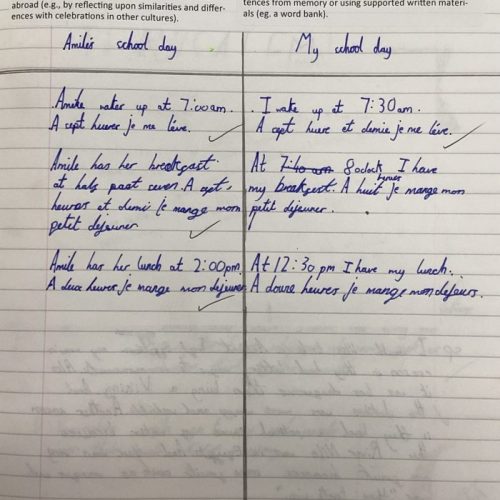 abroad (e.g., by reflecting upon similarities and differ-
ences with celebrations in other cultures).
tences from memory or using supported written materi-
als (eg. a word bank).
Amilie's school day
My school day
Amilie wakes up at 7:00am.
A cept heures je me lève.
I wake up at 7:30am.
A cept heure et demie je me lève.
Amilie has her breckfast
at hals past ceven. A cept
heures et demi je mange mon
petit dejeuner
At 7:40 am 8 oclock I have
my breakfast. A huit heures je mange mon
petit dejeuner.
Amilie has her lunch at 2:00pm.
A deux heures je mange mon dejeuner
At 12:30pm I have my lunch.
A douze heures je mange mon dejeurs.